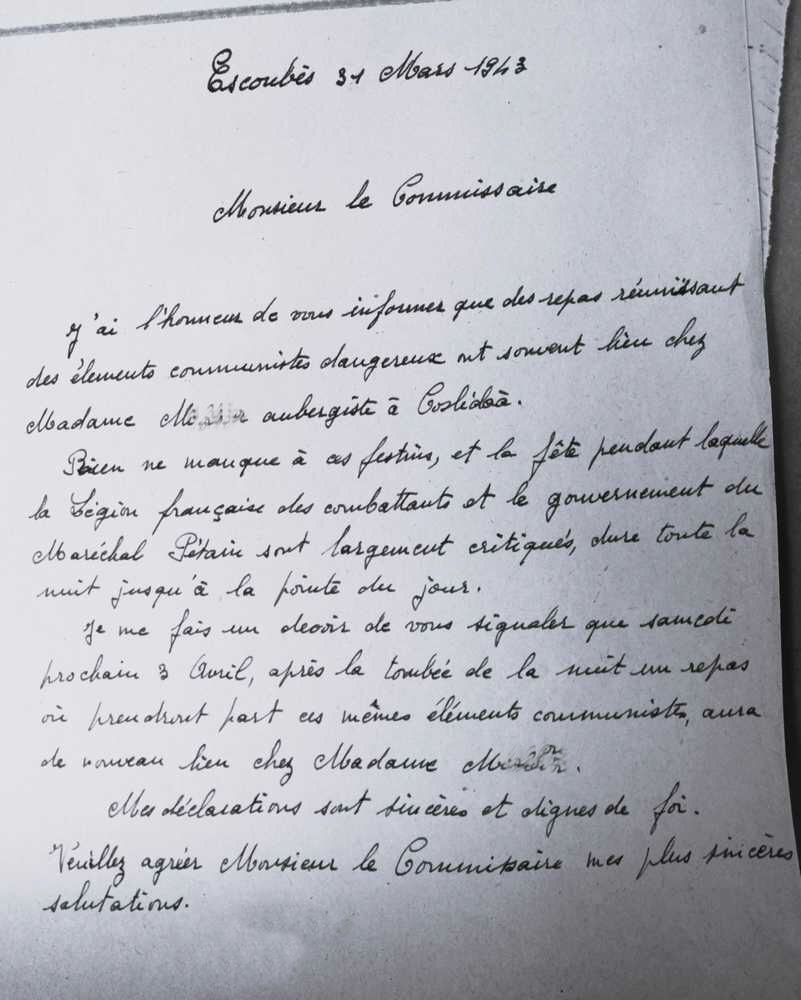 Escoubès 31 Mars 1943
Monsieur le Commissaire
J'ai l'honneur de vous informer que des repas réunissant
des élements communistes dangereux ont souvent lieu chez
Madame aubergiste à Coslédaà.
Rien ne manque à ces festins, et la fête pendant laquelle
la Légion française des combattants et le gouvernement du
Maréchal Pétain sont largement critiqués, dure toute la
nuit jusqu'à la pointe du jour.
Je me fais un devoir de vous signaler que samedi
prochain 3 Avril, après la tombée de la nuit un repas
où prendront part ces mêmes éléments communistes, aura
de nouveau lieu chez Madame
Mes déclarations sont sincères et dignes de foi.
Veuillez agréer Monsieur le Commissaire mes plus sincères
salutations.